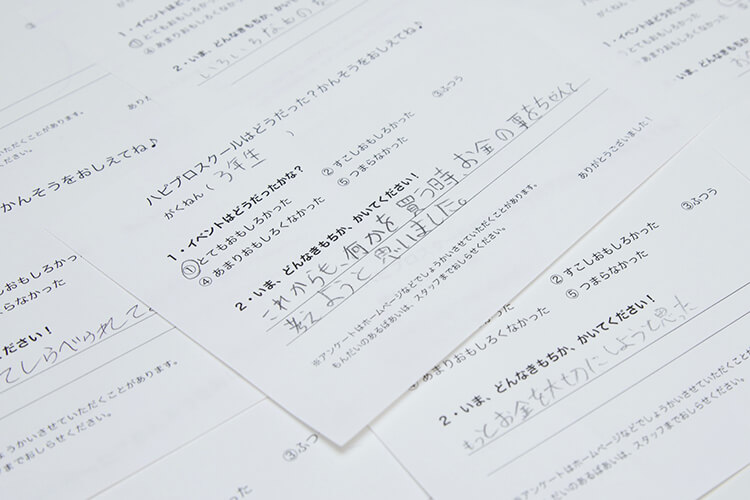 ハピプロスクールはどうだった？かんそうをおしえてね♪
がくねん（ 3年生 ）
1・イベントはどうだったかな？
①とてもおもしろかった ②すこしおもしろかった ③ふつう
④あまりおもしろくなかった ⑤つまらなかった
2・いま、どんなきもちか、かいてください！
これからも、何かを買う時、お金の事をちゃんと
考えようと思いました。
ありがとうございました！
※アンケートはホームページなどでしょうかいさせていただくことがあります。
もんだいのあるばあいは、スタッフまでおしらせください。
1・イベントはどうだ
①とてもおもしろかった
④あまりおもしろく
2・いま、どんなき
いろいろな
かんそうをおしえてね♪
ださい！
てしらべられて
③ふつう
②すこしおもしろかった
⑤つまらなかった
あまりおもしろくなかった
2・いま、どんなきもちか、かいてください！
もっとお金を大切にしようと思った
※アンケートはホームページなどでしょうかいさせていただくことが
だいのあるばあいは、スタッフまでおしらせください。